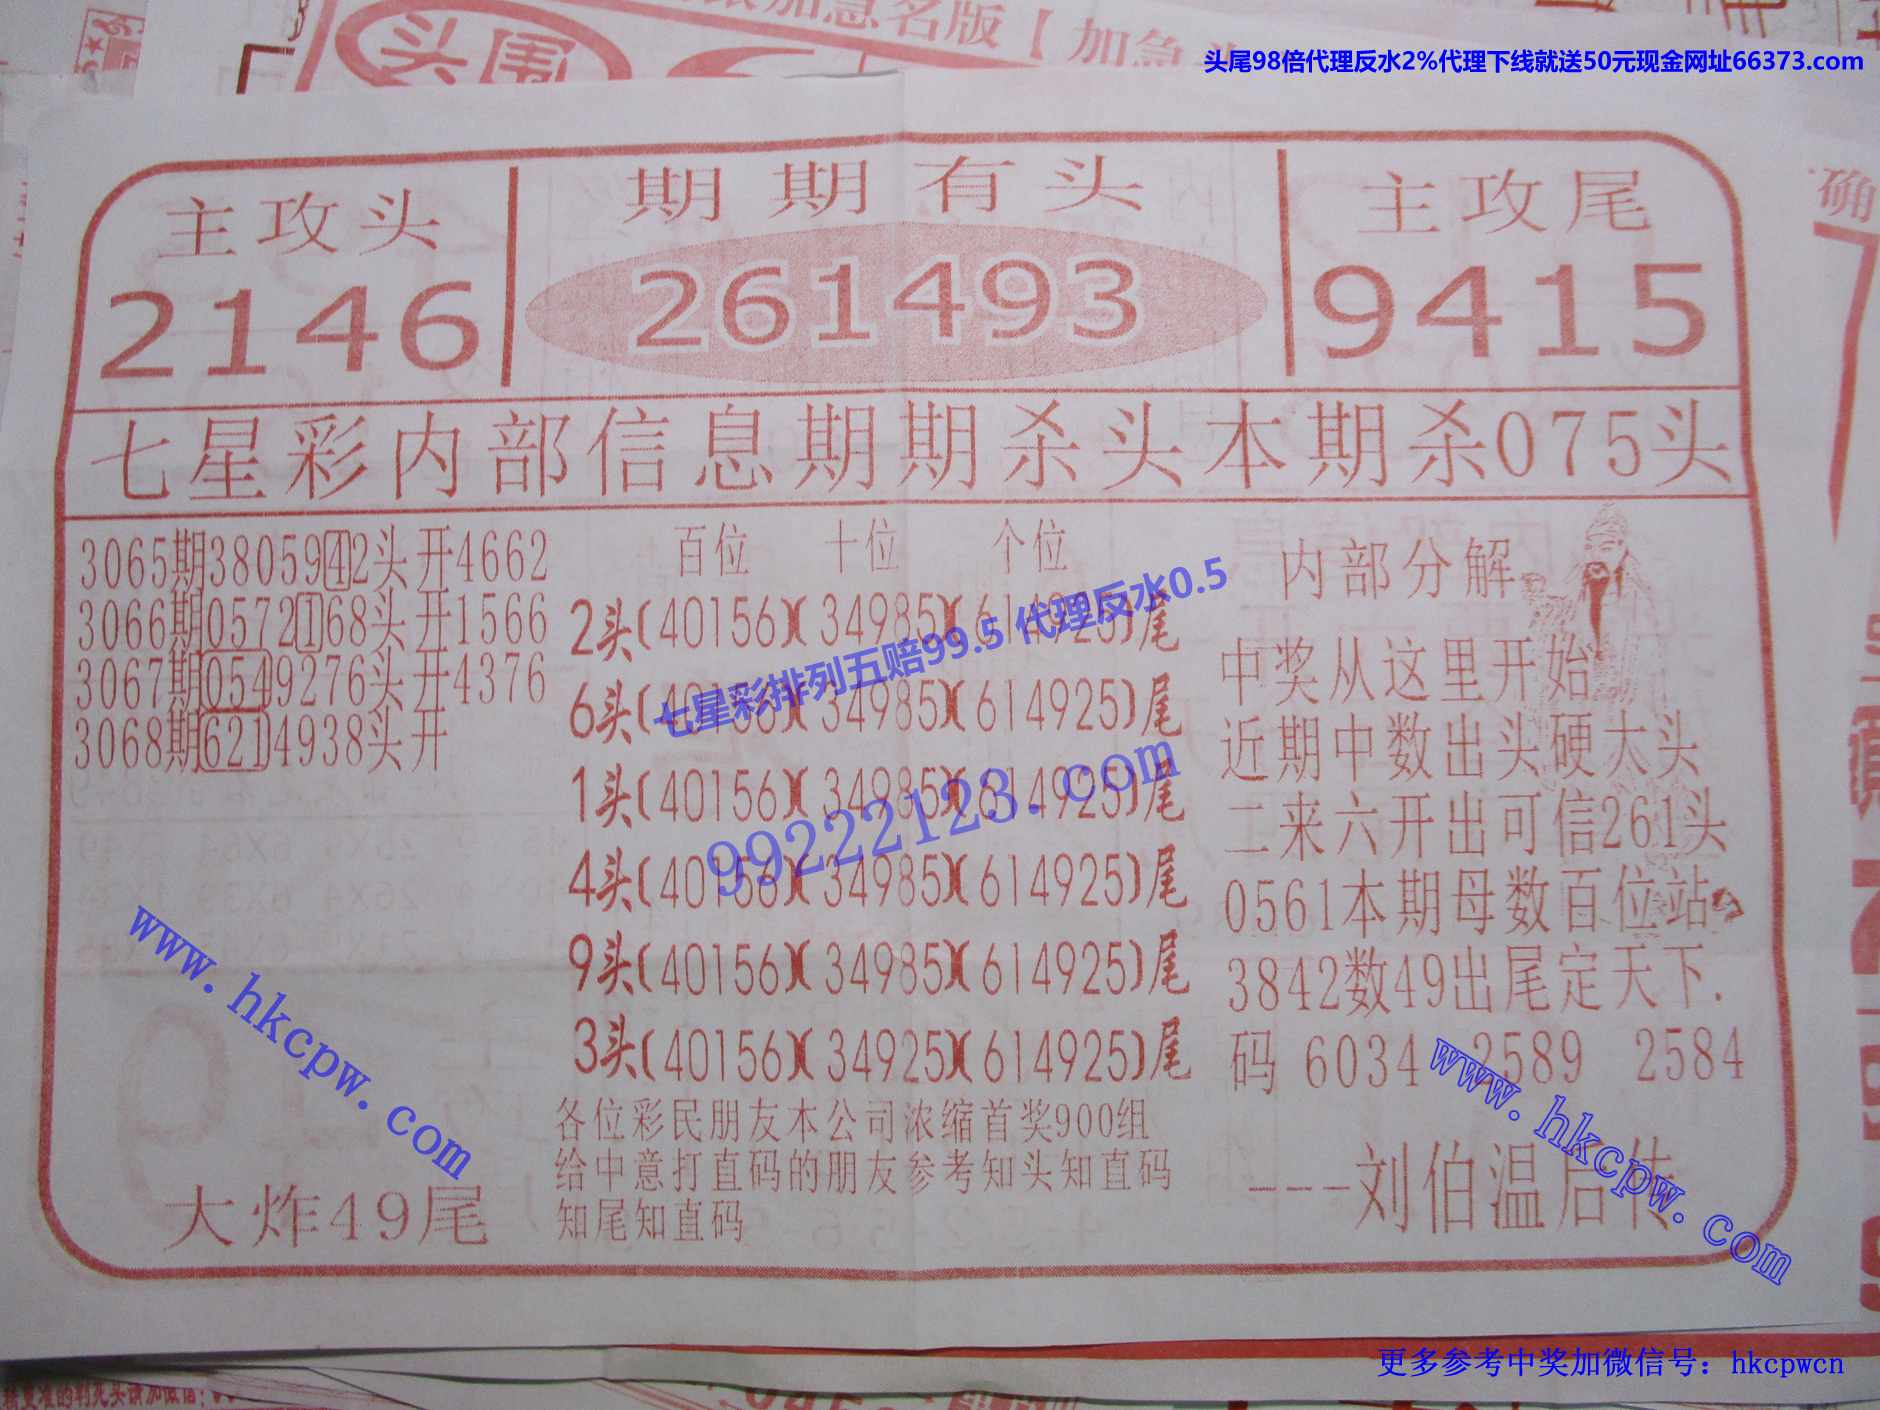 加急名版【加急
头围
头尾98倍代理反水2%代理下线就送50元现金网址66373.com
确
主攻头
2146
期期有头
261493
主攻尾
9415
七星彩内部信息期期杀头本期杀075头
3065期3805942头开4662
3066期0572168头开1566
3067期0549276头开4376
3068期6214938头开
百位 十位 个位
2头(40156)(34985)(614925)尾
6头(40156)(34985)(614925)尾
1头(40156)(34985)(614925)尾
4头(40156)(34985)(614925)尾
9头(40156)(34985)(614925)尾
3头(40156)(34925)(614925)尾
七星彩排列五赔99.5 代理反水0.5
99222123.com
内部分解
中奖从这里开始
近期中数出头硬大头
二来六开出可信261头
0561本期母数百位站
3842数49出尾定天下.
码 6034 2589 2584
---刘伯温后传
www.hkcpw.com
www.hkcpw.com
大炸49尾
各位彩民朋友本公司浓缩首奖900组
给中意打直码的朋友参考知头知直码
知尾知直码
更多参考中奖加微信号：hkcpwcn